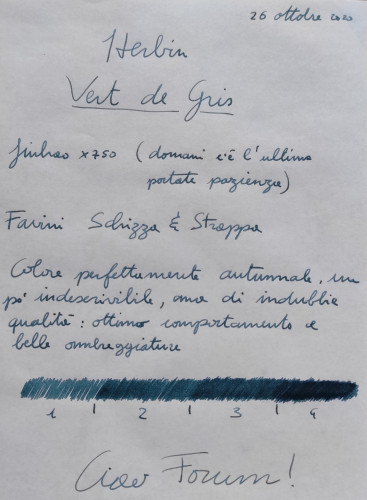 26 ottobre 2020
Herbin
Vert de Gris
Jinhao x750 (domani c'è l'ultima
portate pazienza)
Favini Schizza & Strappa
Colore perfettamente autunnale, un
po' indescrivibile, ma di indubbia
qualità: ottimo comportamento e
belle ombreggiature
1 | 2 | 3 | 4
Ciao Forum!